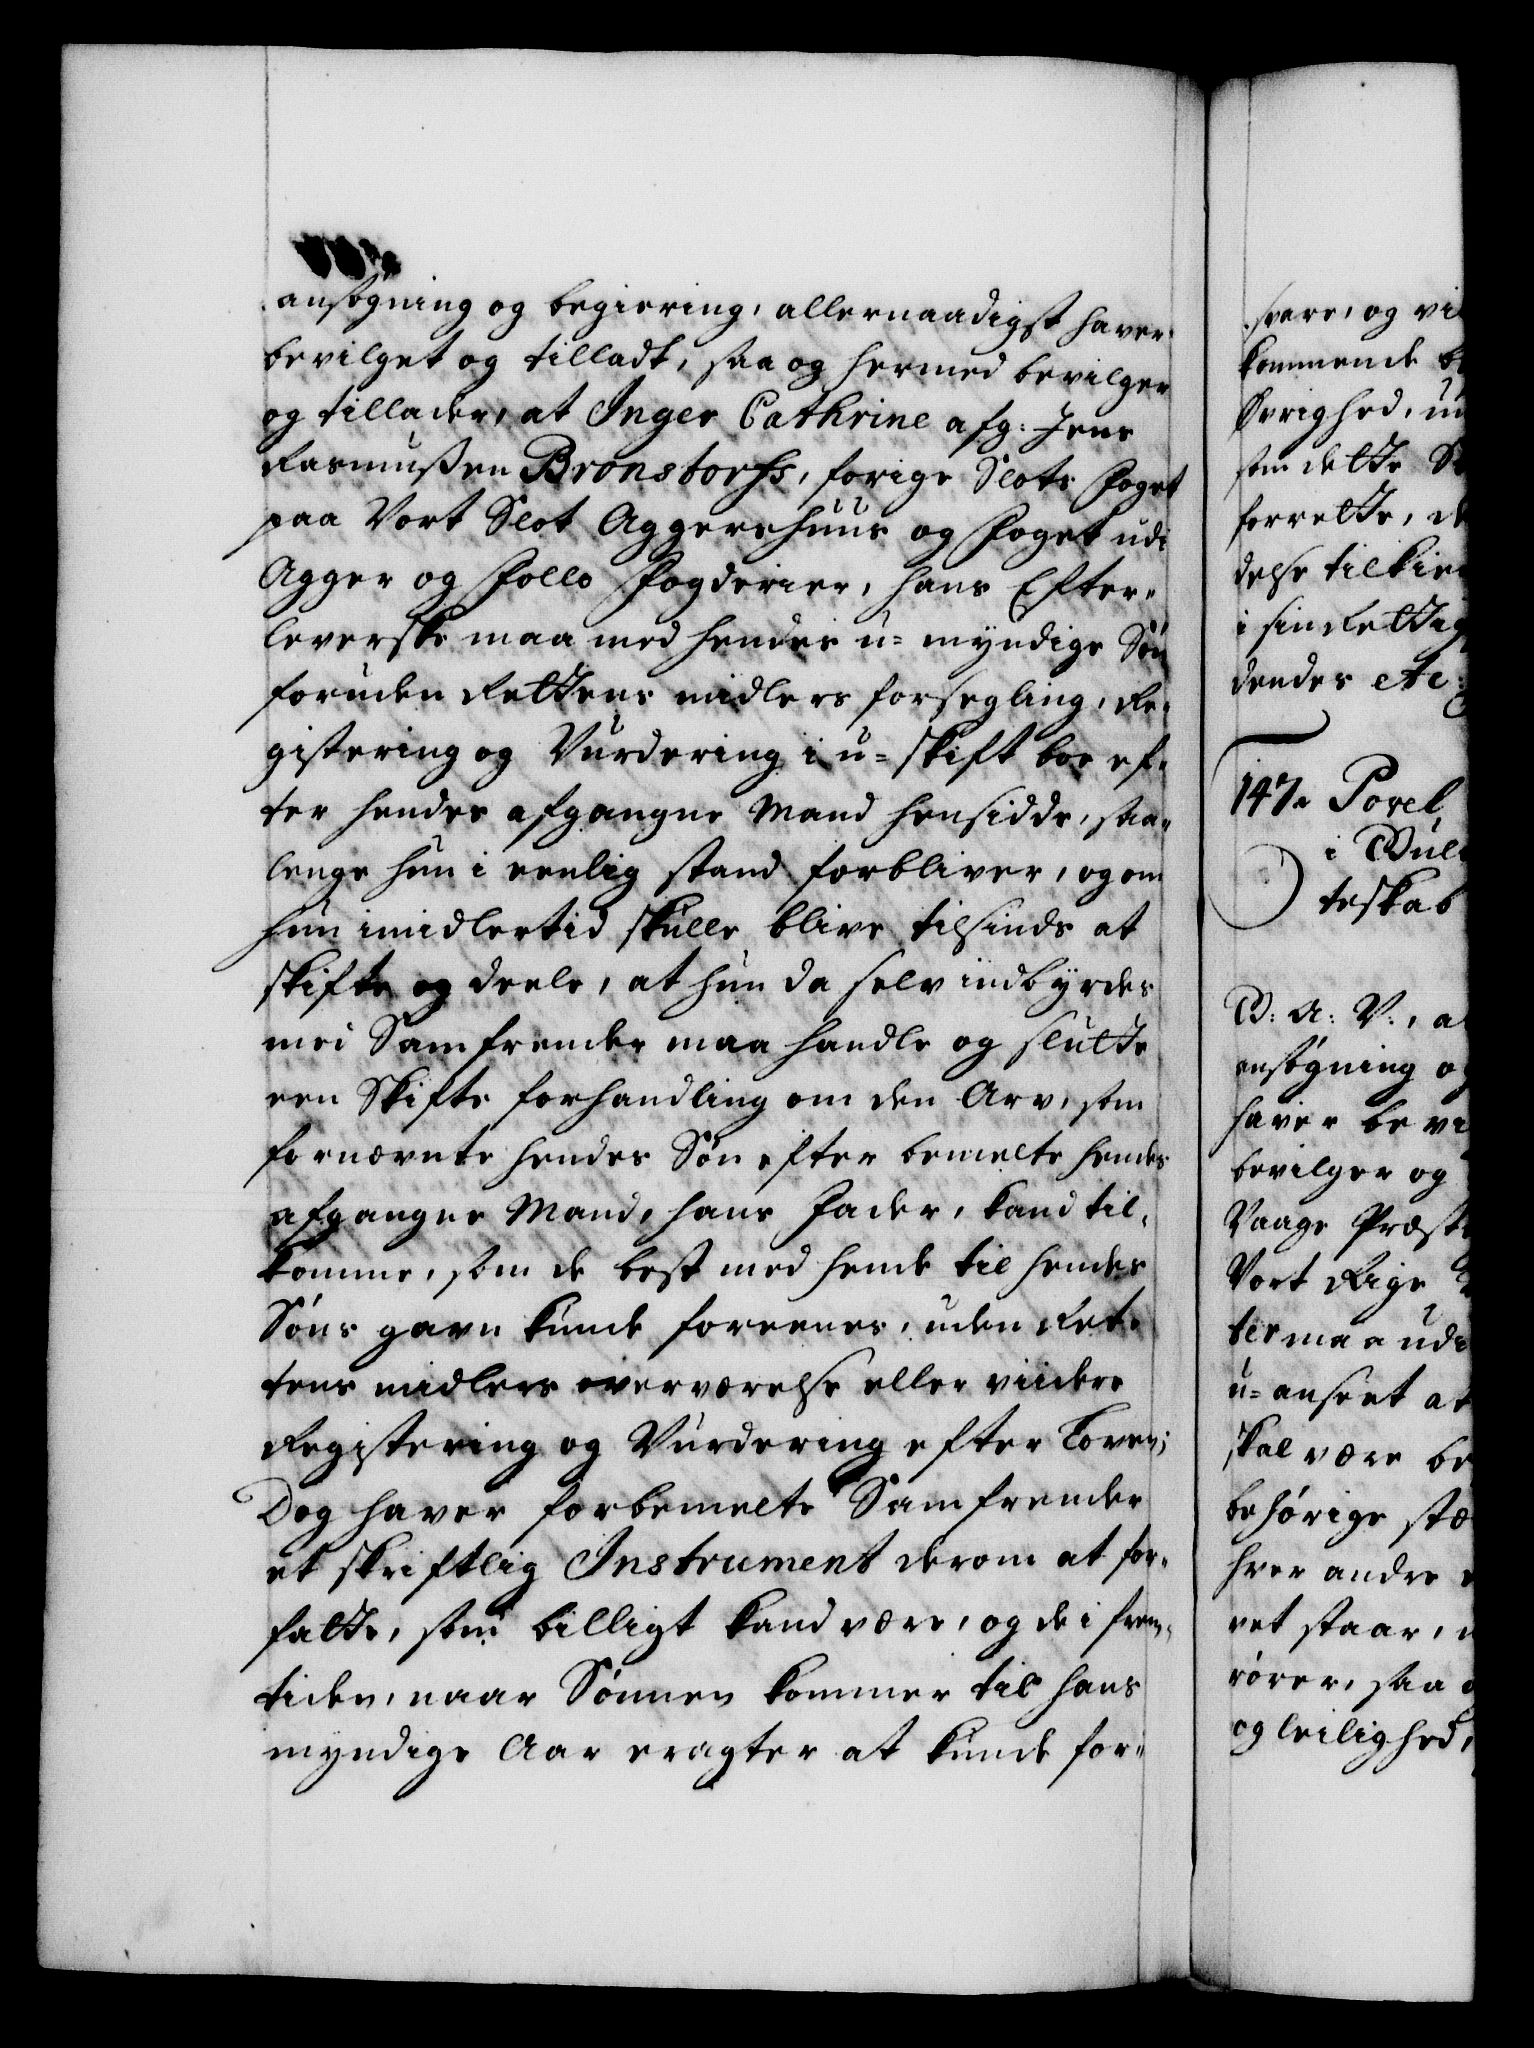 ansøgning og begiering, allernaadigst haver
bevilget og tilladt, saa og hermed bevilger
og tillader, at Inger Cathrine afg: Jens
Rasmußen Bronstorfs, forige Slots Foget
paa Vort Slot Aggershuus og Foget udi
Agger og Follo Fogderier, hans Efter-
leverske maa med hendes u-myndige Søn
foruden Rettens midlers forsegling, Re-
gistering og Vurdering i u-skift boe ef-
ter hendes afgangne Mand hensidde, saa-
lenge hun i eenlig stand forbliver, og om
hun imidlertid skulle blive tilsinds at
skifte og deele, at hun da selv indbyrdes
med Samfrender maa handle og slutte
een Skifte forhandling om den Arv, som
fornævnte hendes Søn efter bemelte hendes
afgangne Mand, hans Fader, kand til-
komme, som de best med hende til hendes
Søns gavn kunde foreenes, uden Ret-
tens midlers overværelse eller viidere
Registering og Vurdering efter Loven;
Dog haver forbemelte Samfrender
et skriftlig Instrument derom at for-
fatte, som billigt kand være, og de i frem-
tiden, naar Sønnen kommer til hans
myndige Aar eragter at kunde for-
svare, og vil
kommende
Øvrighed,
som dette
forrette,
delse tilkien
i sin Rettig
dendes etc:
147. Povel
i
teskab
B: A: V:, a
ansøgning og
haver bevi
bevilger og
Vaage Præste
Vort Rige
ter maa udi
u-anseet at
skal være be
behørige stæ
hver andre
vet staar,
rører, saa
og leilighed,